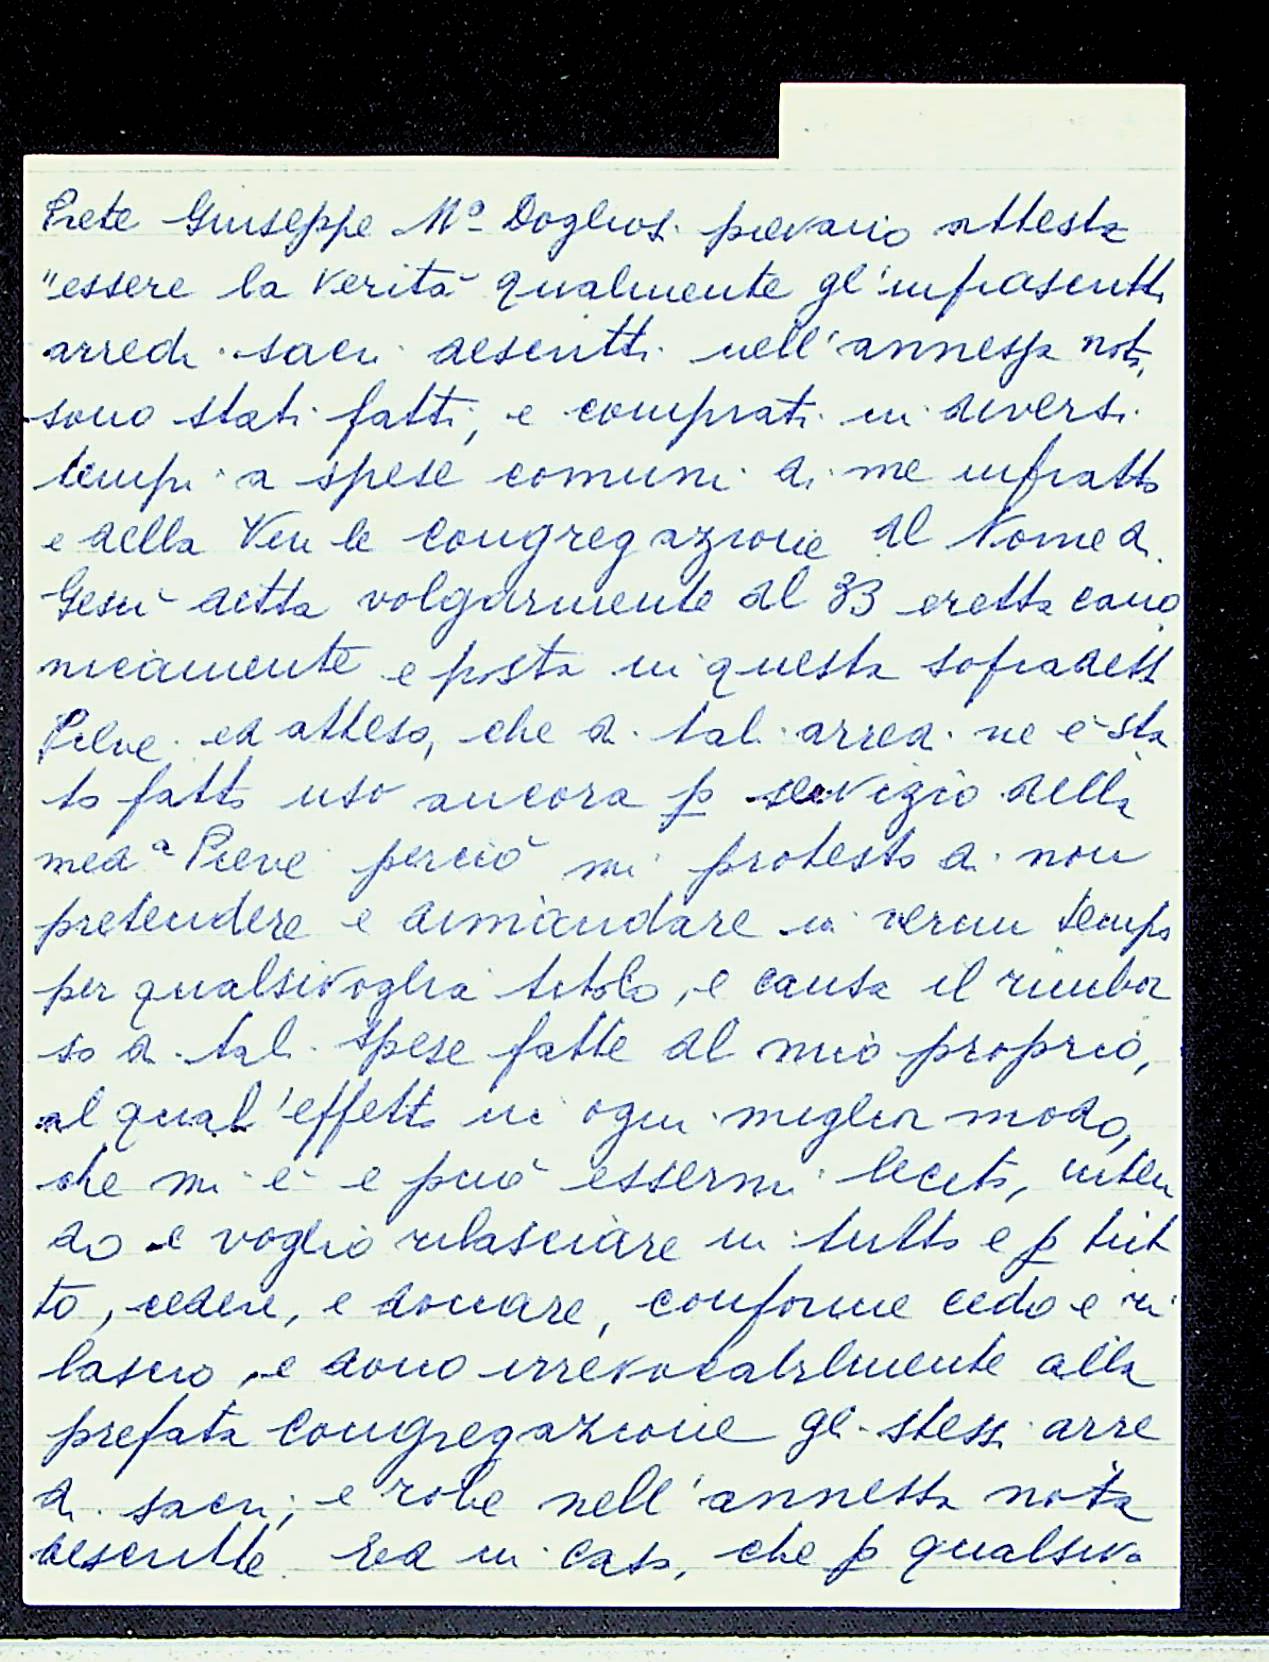 Prete Giuseppe Mª Dogliosi pievano attesta
"essere la verità qualmente gl'infrascritti
arredi sacri descritti nell'annessa nota,
sono stati fatti, e comprati in diversi
tempi a spese comuni di me infratto
e della Venle Congregazione del Nome di
Gesù detta volgarmente del 33 eretta cano
nicamente e posta in questa sopradetta
Pieve ed atteso, che di tali arredi ne è sta
to fatto uso ancora p servizio della
medª Pieve perciò mi protesto di non
pretendere e dimandare in verun tempo
per qualsivoglia titolo, e causa il rimbor
so di tali spese fatte del mio proprio,
al qual'effetto in ogni miglior modo,
che mi è e può essermi lecito, inten
do e voglio rilasciare in tutto e p tut
to, cedere, e donare, conforme cedo e ri
lascio, e dono irrevocabilmente alla
prefata Congregazione gli stessi arre
di sacri, e robe nell'annessa nota
descritte. Ed in caso, che p qualsivo